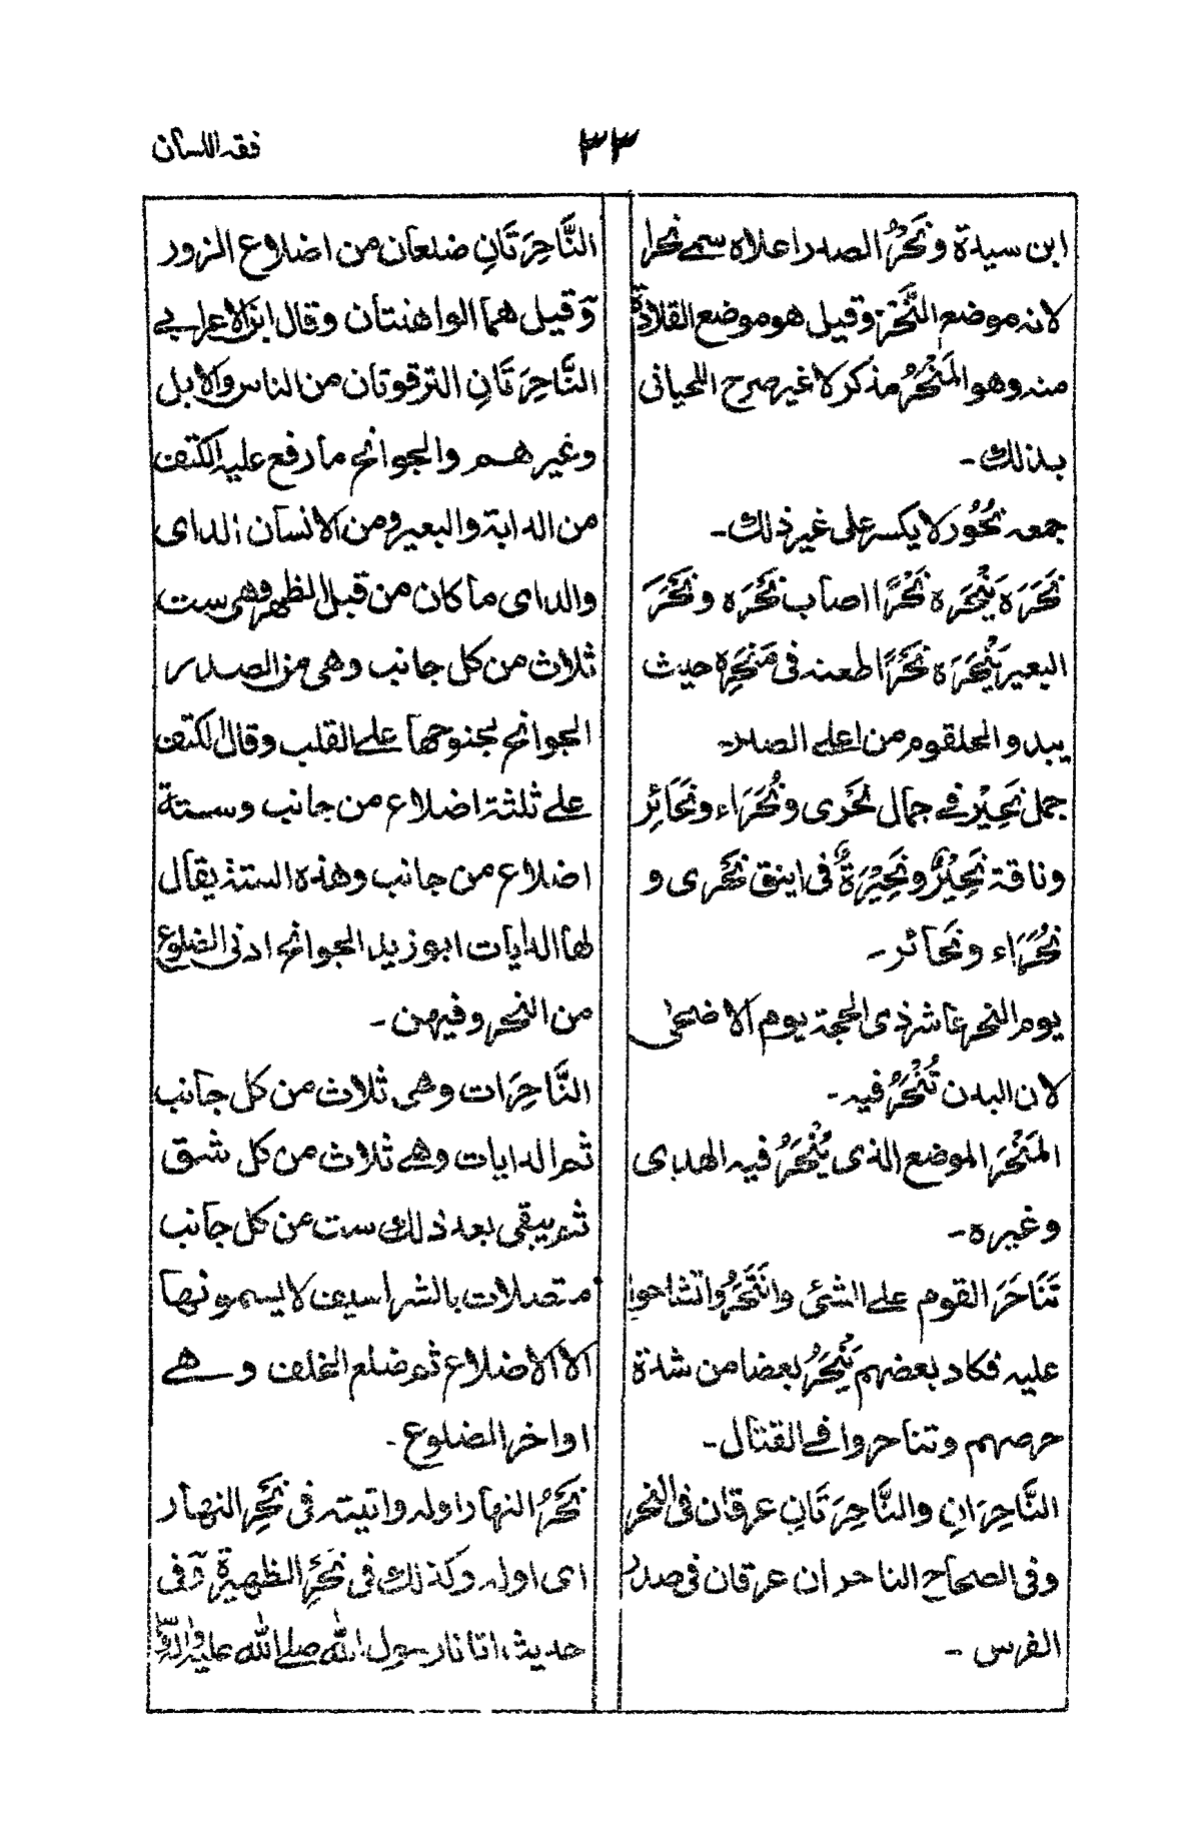 فقه اللسان
٣٣
ابن سيدة ونَحْرُ الصدر اعلاه سمے نحرا
لانه موضع النَّحْرِ وقيل هو موضع القلادة
منه وهو المَنْحَرُ مذكر لا غير صرح اللحيانی
بذلك ـ
جمعه نُحُوْر لا يكسر على غير ذلك ـ
نَحَرَه يَنْحَرَه نَحْرًا اصاب نَحْرَه ونَحَرَ
البعير يَنْحَرَه نَحْرًا طعنه فی مَنْحَرِه حيث
يبدو الحلقوم من اعلے الصدر ـ
جمل نَحِيْر فے جمال نَحْرى ونُحَرَاء ونَحَائِر
وناقة نَحِيْرٌ ونَحِيْرَةٌ فی اينق نَحْرى و
نُحَرَاء ونَحائر ـ
يوم النحر عاشر ذی الحجة يوم الاضحٰى
لان البدن تُنْحَرُ فيه ـ
المَنْحَر الموضع الذی يُنْحَرُ فيه الهدى
وغيره ـ
تَنَاحَرَ القوم علے الشئ وانْتَحَرُوا تشاحوا
عليه فكاد بعضهم يَنْحَرُ بعضا من شدة
حرصهم وتناحروا فے القتال ـ
النَّاحِرَانِ والنَّاحِرَتَانِ عرقان فی النحر
وفی الصحاح الناحران عرقان فی صدر
الفرس ـ
النَّاحِرَتَانِ ضلعان من اضلاع الزور
وقيل هما الواهنتان وقال ابن الاعرابے
النَّاحِرَتَانِ الترقوتان من الناس والابل
وغيرهم والجوانح ما رفع عليه الكتف
من الدابة والبعير ومن الانسان الدای
والدای ما كان من قبل الظهر وهی ست
ثلاث من كل جانب وهی من الصدر
الجوانح لجنوحها علے القلب وقال الكتف
علے ثلثة اضلاع من جانب وستة
اضلاع من جانب وهذه الستة يقال
لها الدايات ابو زيد الجوانح ادنی الضلوع
من النحر وفيهن ـ
النَّاحِرَات وهی ثلاث من كل جانب
ثم الدايات وهے ثلاث من كل شق
ثم يبقی بعد ذلك ست من كل جانب
متصلات بالشراسيف لا يسمونها
الا الاضلاع ثم ضلع الخلف وهے
اواخر الضلوع ـ
نَحْرُ النهار اوله واتيته فی نَحْرِ النهار
ای اوله وكذلك فی نَحْرِ الظهيرة وفی
حديث اتانا رسول الله صلے الله عليه